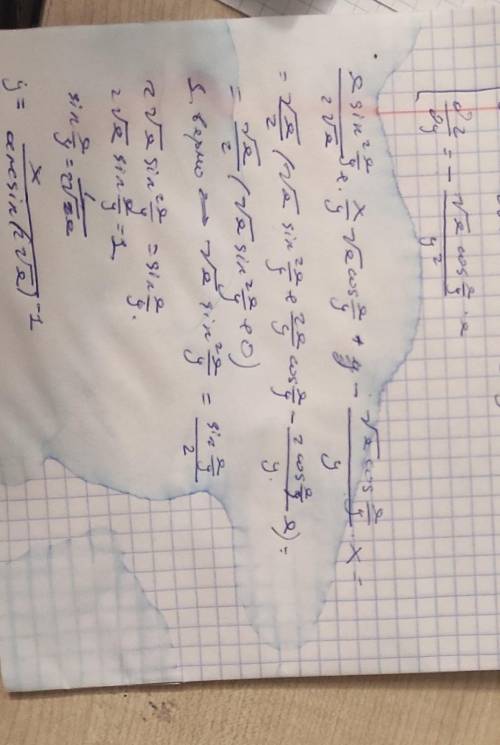 ∂z/∂y = − √x cos x/y · x / y²
x sin x/y / 2√x + x/y √x cos x/y + y · − √x cos x/y / y · x =
= √x/2 (√x sin x/y + 2x/y cos x/y − 2cos x/y / y · x) =
= √x/2 (√x sin x/y + 0)
√x sin² x/y = sin x/y / 2
2√x sin² x/y = sin x/y.
2√x sin x/y = 1
sin x/y = 1/2√x
y = x / arcsin(2√x)⁻¹